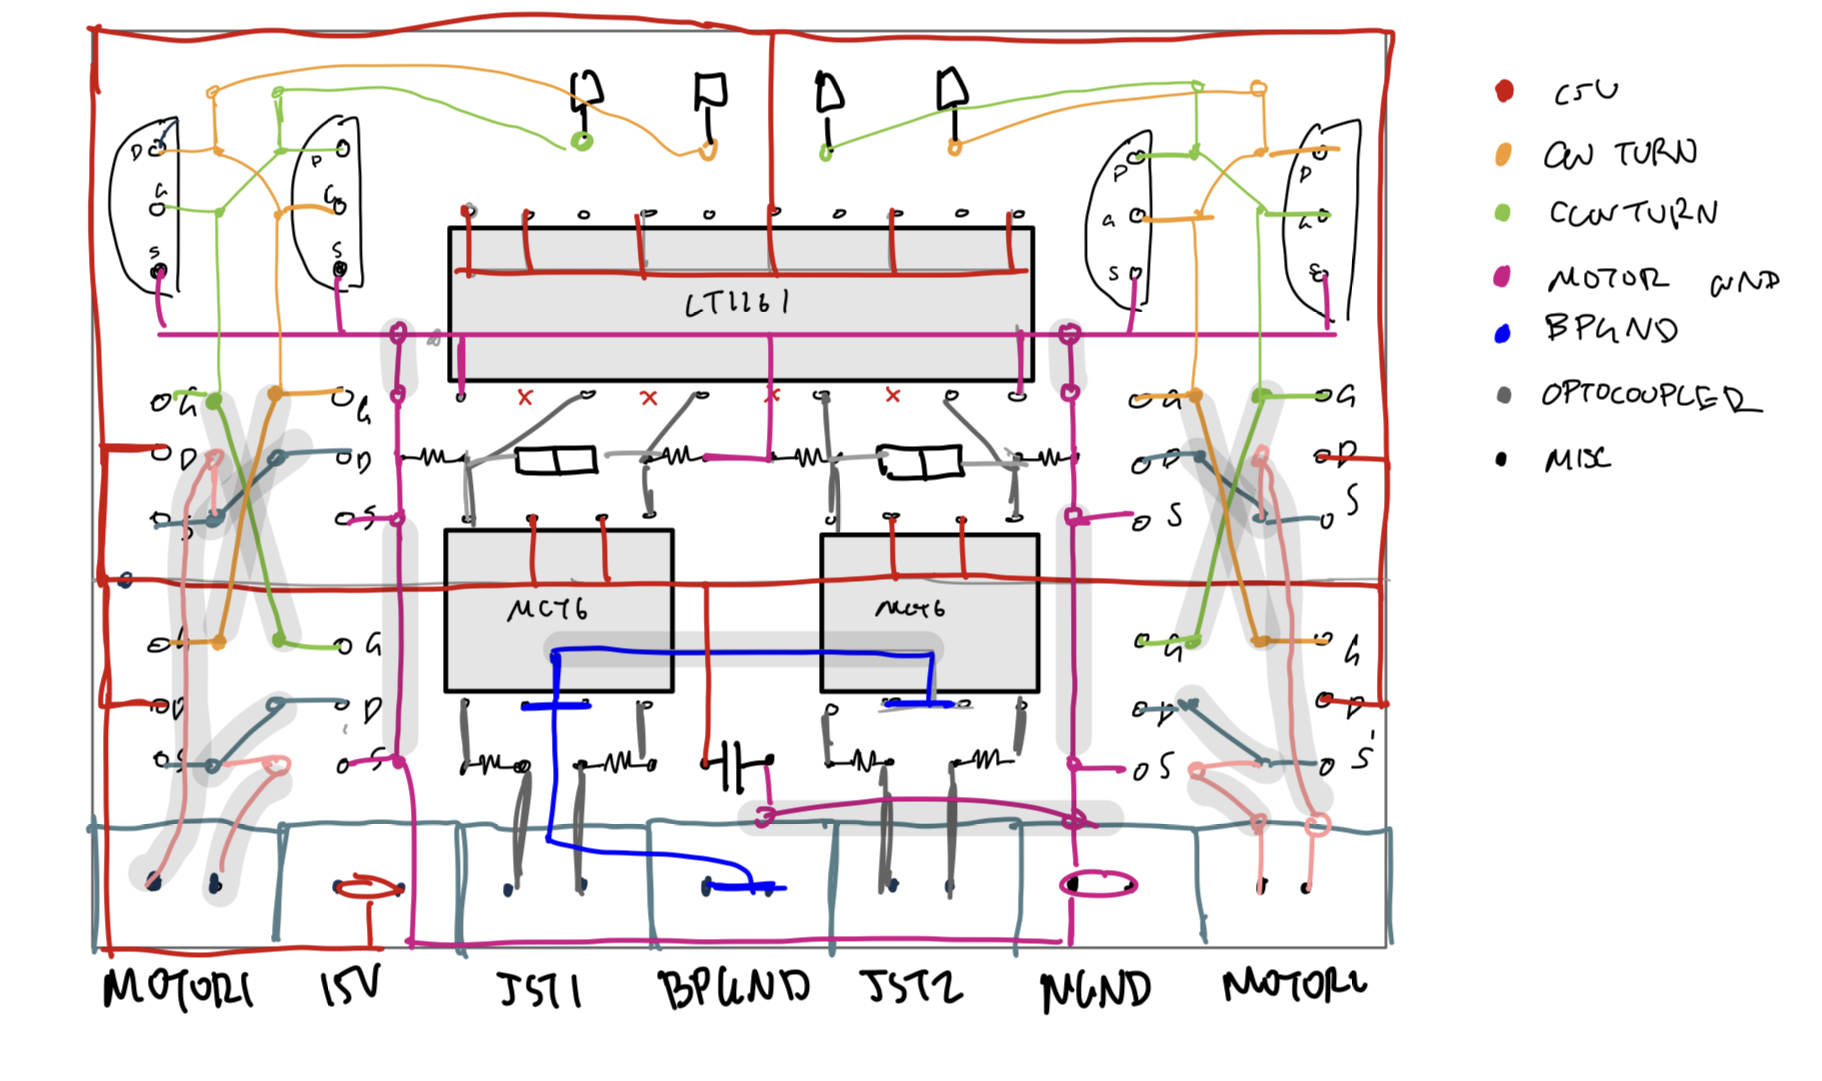 15V
CW TURN
CCW TURN
MOTOR GND
BPGND
OPTOCOUPLER
MISC
D
P
P
P
G
G
G
G
S
S
S
S
LT1161
G
G
G
G
D
D
D
D
S
S
S
S
MCT6
MCT6
G
G
G
G
D
D
D
D
S
S
S
S
MOTOR1
15V
JST1
BPGND
JST2
MGND
MOTOR2